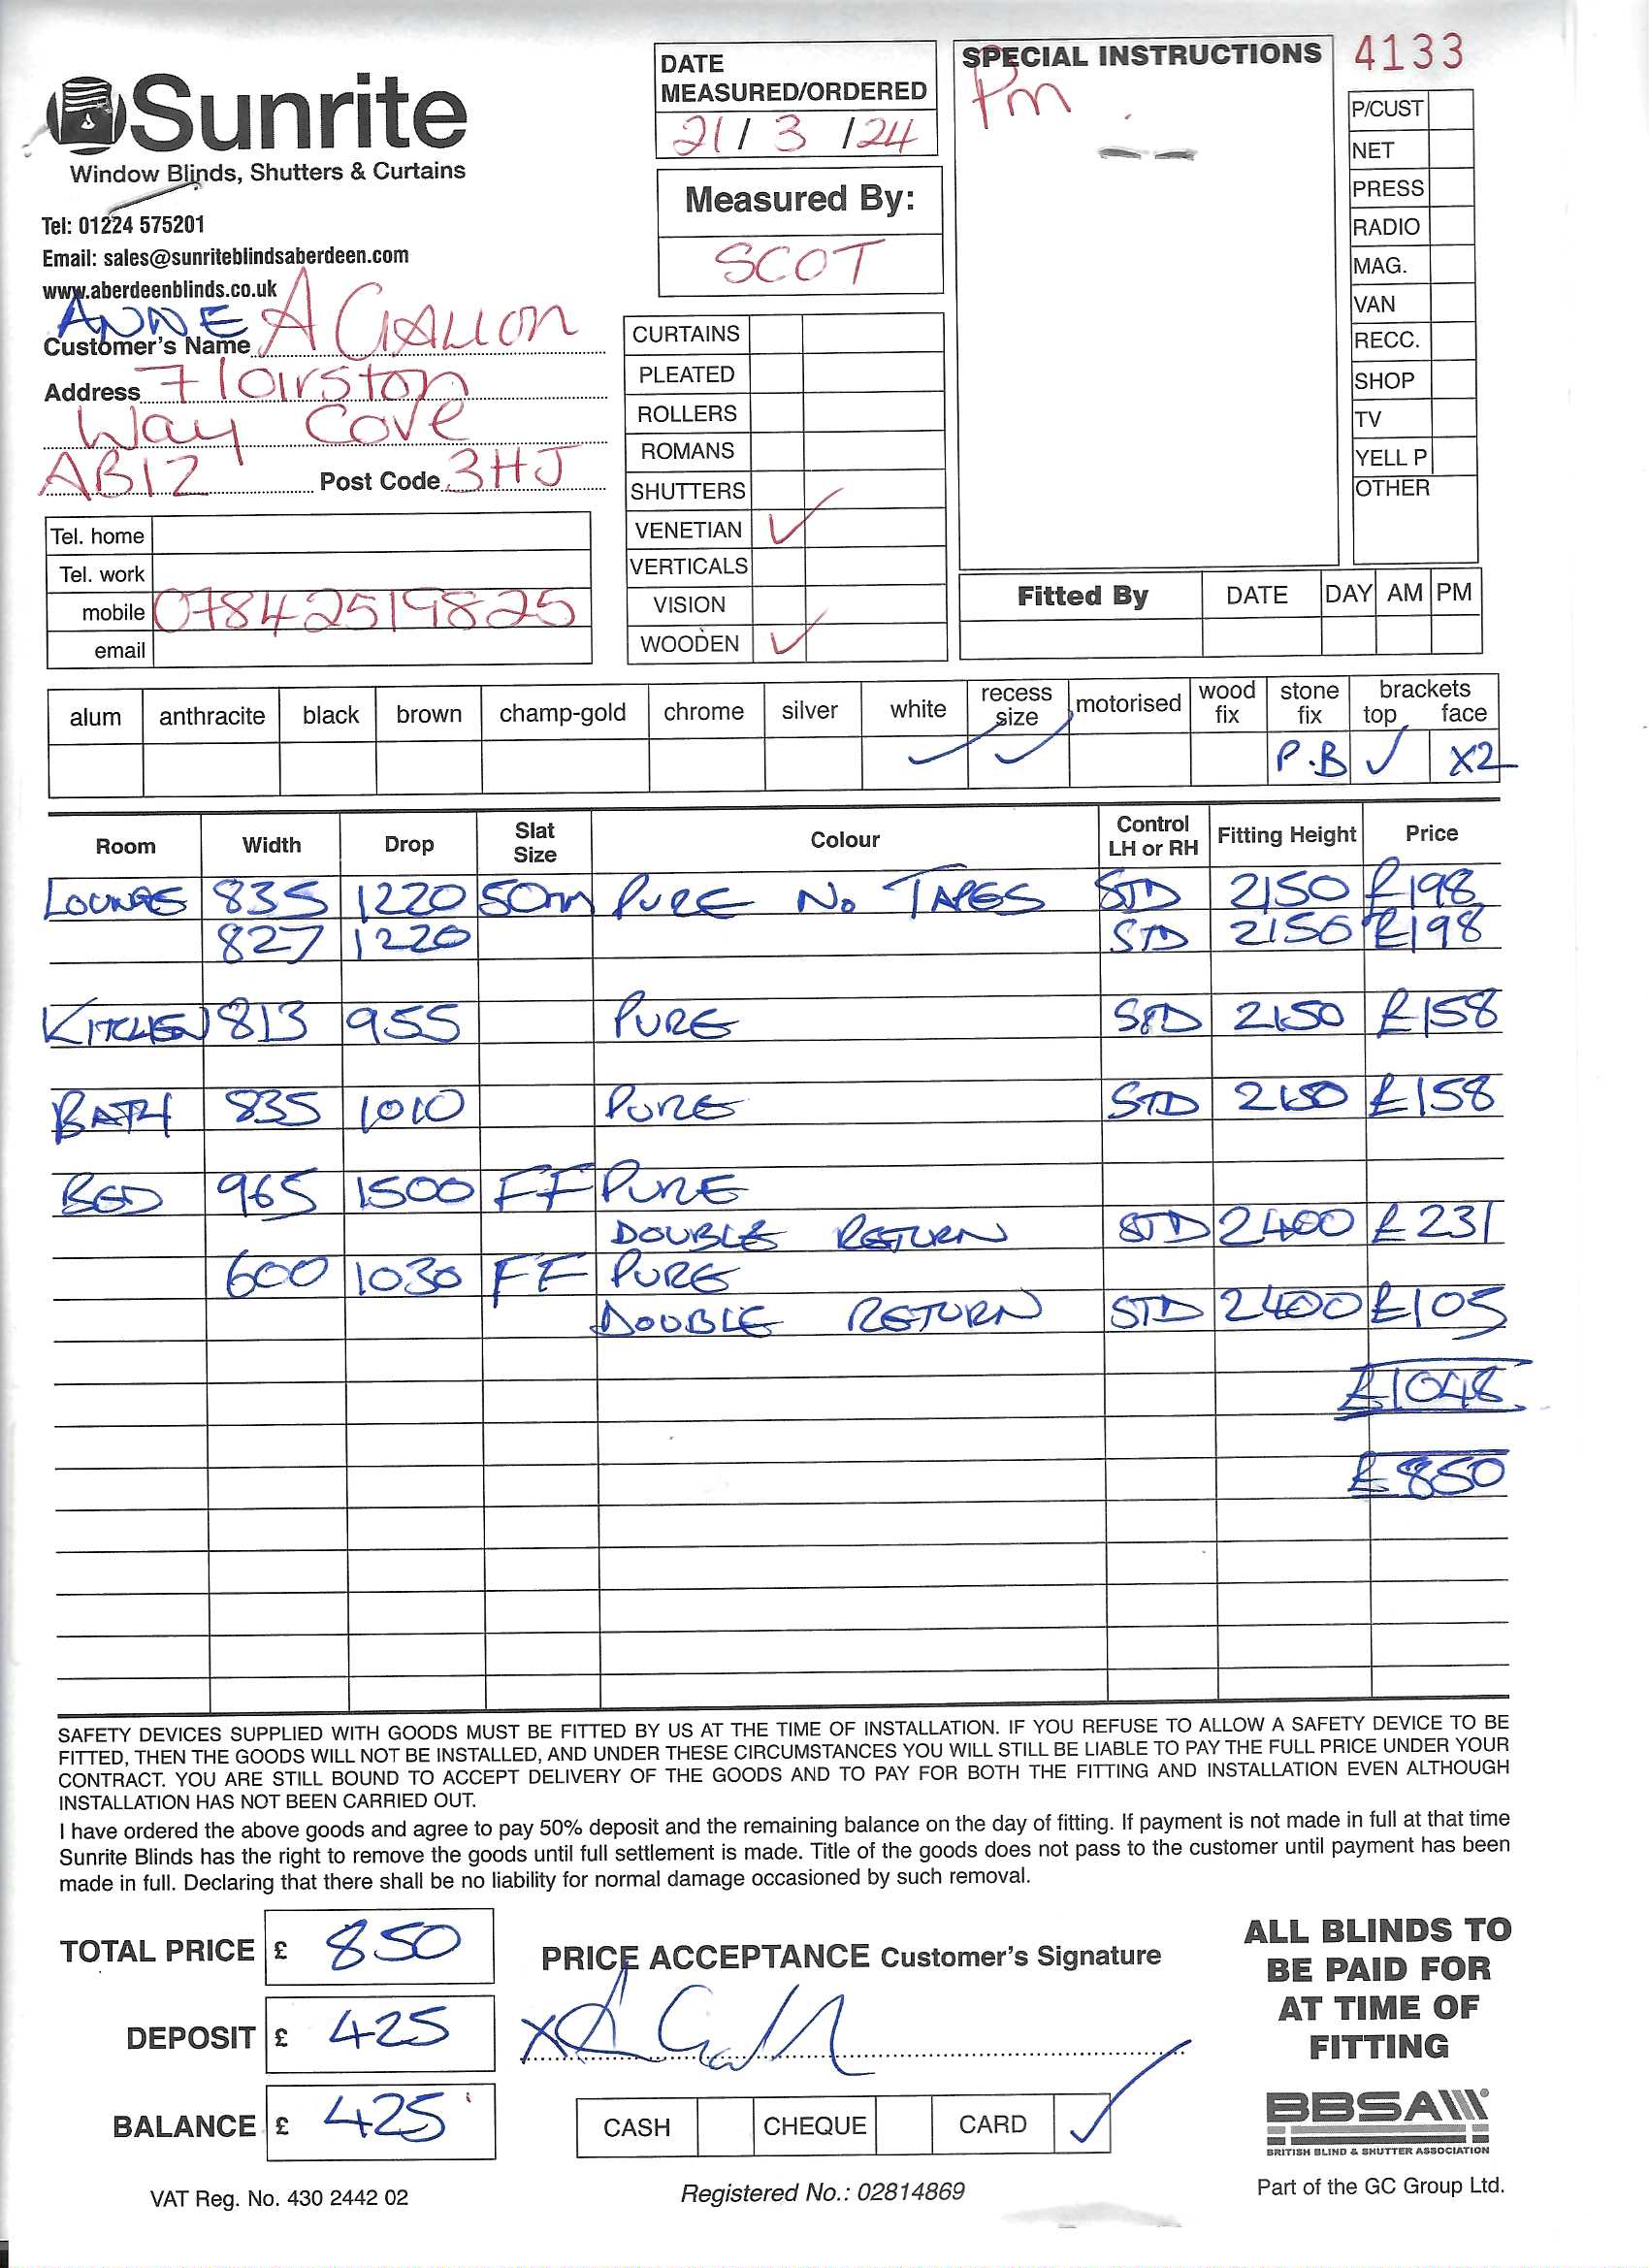 Sunrite
Window Blinds, Shutters & Curtains
Tel: 01224 575201
Email: sales@sunriteblindsaberdeen.com
www.aberdeenblinds.co.uk
ANNE A GALLON
Customer's Name
Address 7 Loirston
Way Cove
AB12 Post Code 3HJ
Tel. home
Tel. work
mobile 07842519825
email
DATE
MEASURED/ORDERED
21 / 3 / 24
Measured By:
SCOT
CURTAINS
PLEATED
ROLLERS
ROMANS
SHUTTERS
VENETIAN ✓
VERTICALS
VISION
WOODEN ✓
SPECIAL INSTRUCTIONS
Pm
4133
P/CUST
NET
PRESS
RADIO
MAG.
VAN
RECC.
SHOP
TV
YELL P
OTHER
Fitted By DATE DAY AM PM
alum anthracite black brown champ-gold chrome silver white recess size motorised wood fix stone fix brackets top face
✓ ✓ P.B ✓ X2
Room Width Drop Slat Size Colour Control LH or RH Fitting Height Price
LOUNGE 835 1220 50m PURE No TAPES STD 2150 £198
827 1220 STD 2150 £198
KITCHEN 813 955 PURE STD 2150 £158
BATH 835 1010 PURE STD 2150 £158
BED 965 1500 FF PURE
DOUBLE RETURN STD 2400 £231
600 1030 FF PURE
DOUBLE RETURN STD 2400 £105
£1048
£850
SAFETY DEVICES SUPPLIED WITH GOODS MUST BE FITTED BY US AT THE TIME OF INSTALLATION. IF YOU REFUSE TO ALLOW A SAFETY DEVICE TO BE
FITTED, THEN THE GOODS WILL NOT BE INSTALLED, AND UNDER THESE CIRCUMSTANCES YOU WILL STILL BE LIABLE TO PAY THE FULL PRICE UNDER YOUR
CONTRACT. YOU ARE STILL BOUND TO ACCEPT DELIVERY OF THE GOODS AND TO PAY FOR BOTH THE FITTING AND INSTALLATION EVEN ALTHOUGH
INSTALLATION HAS NOT BEEN CARRIED OUT.
I have ordered the above goods and agree to pay 50% deposit and the remaining balance on the day of fitting. If payment is not made in full at that time
Sunrite Blinds has the right to remove the goods until full settlement is made. Title of the goods does not pass to the customer until payment has been
made in full. Declaring that there shall be no liability for normal damage occasioned by such removal.
TOTAL PRICE £ 850
DEPOSIT £ 425
BALANCE £ 425
VAT Reg. No. 430 2442 02
PRICE ACCEPTANCE Customer's Signature
x A Gall
CASH CHEQUE CARD ✓
Registered No.: 02814869
ALL BLINDS TO
BE PAID FOR
AT TIME OF
FITTING
BBSA
BRITISH BLIND & SHUTTER ASSOCIATION
Part of the GC Group Ltd.